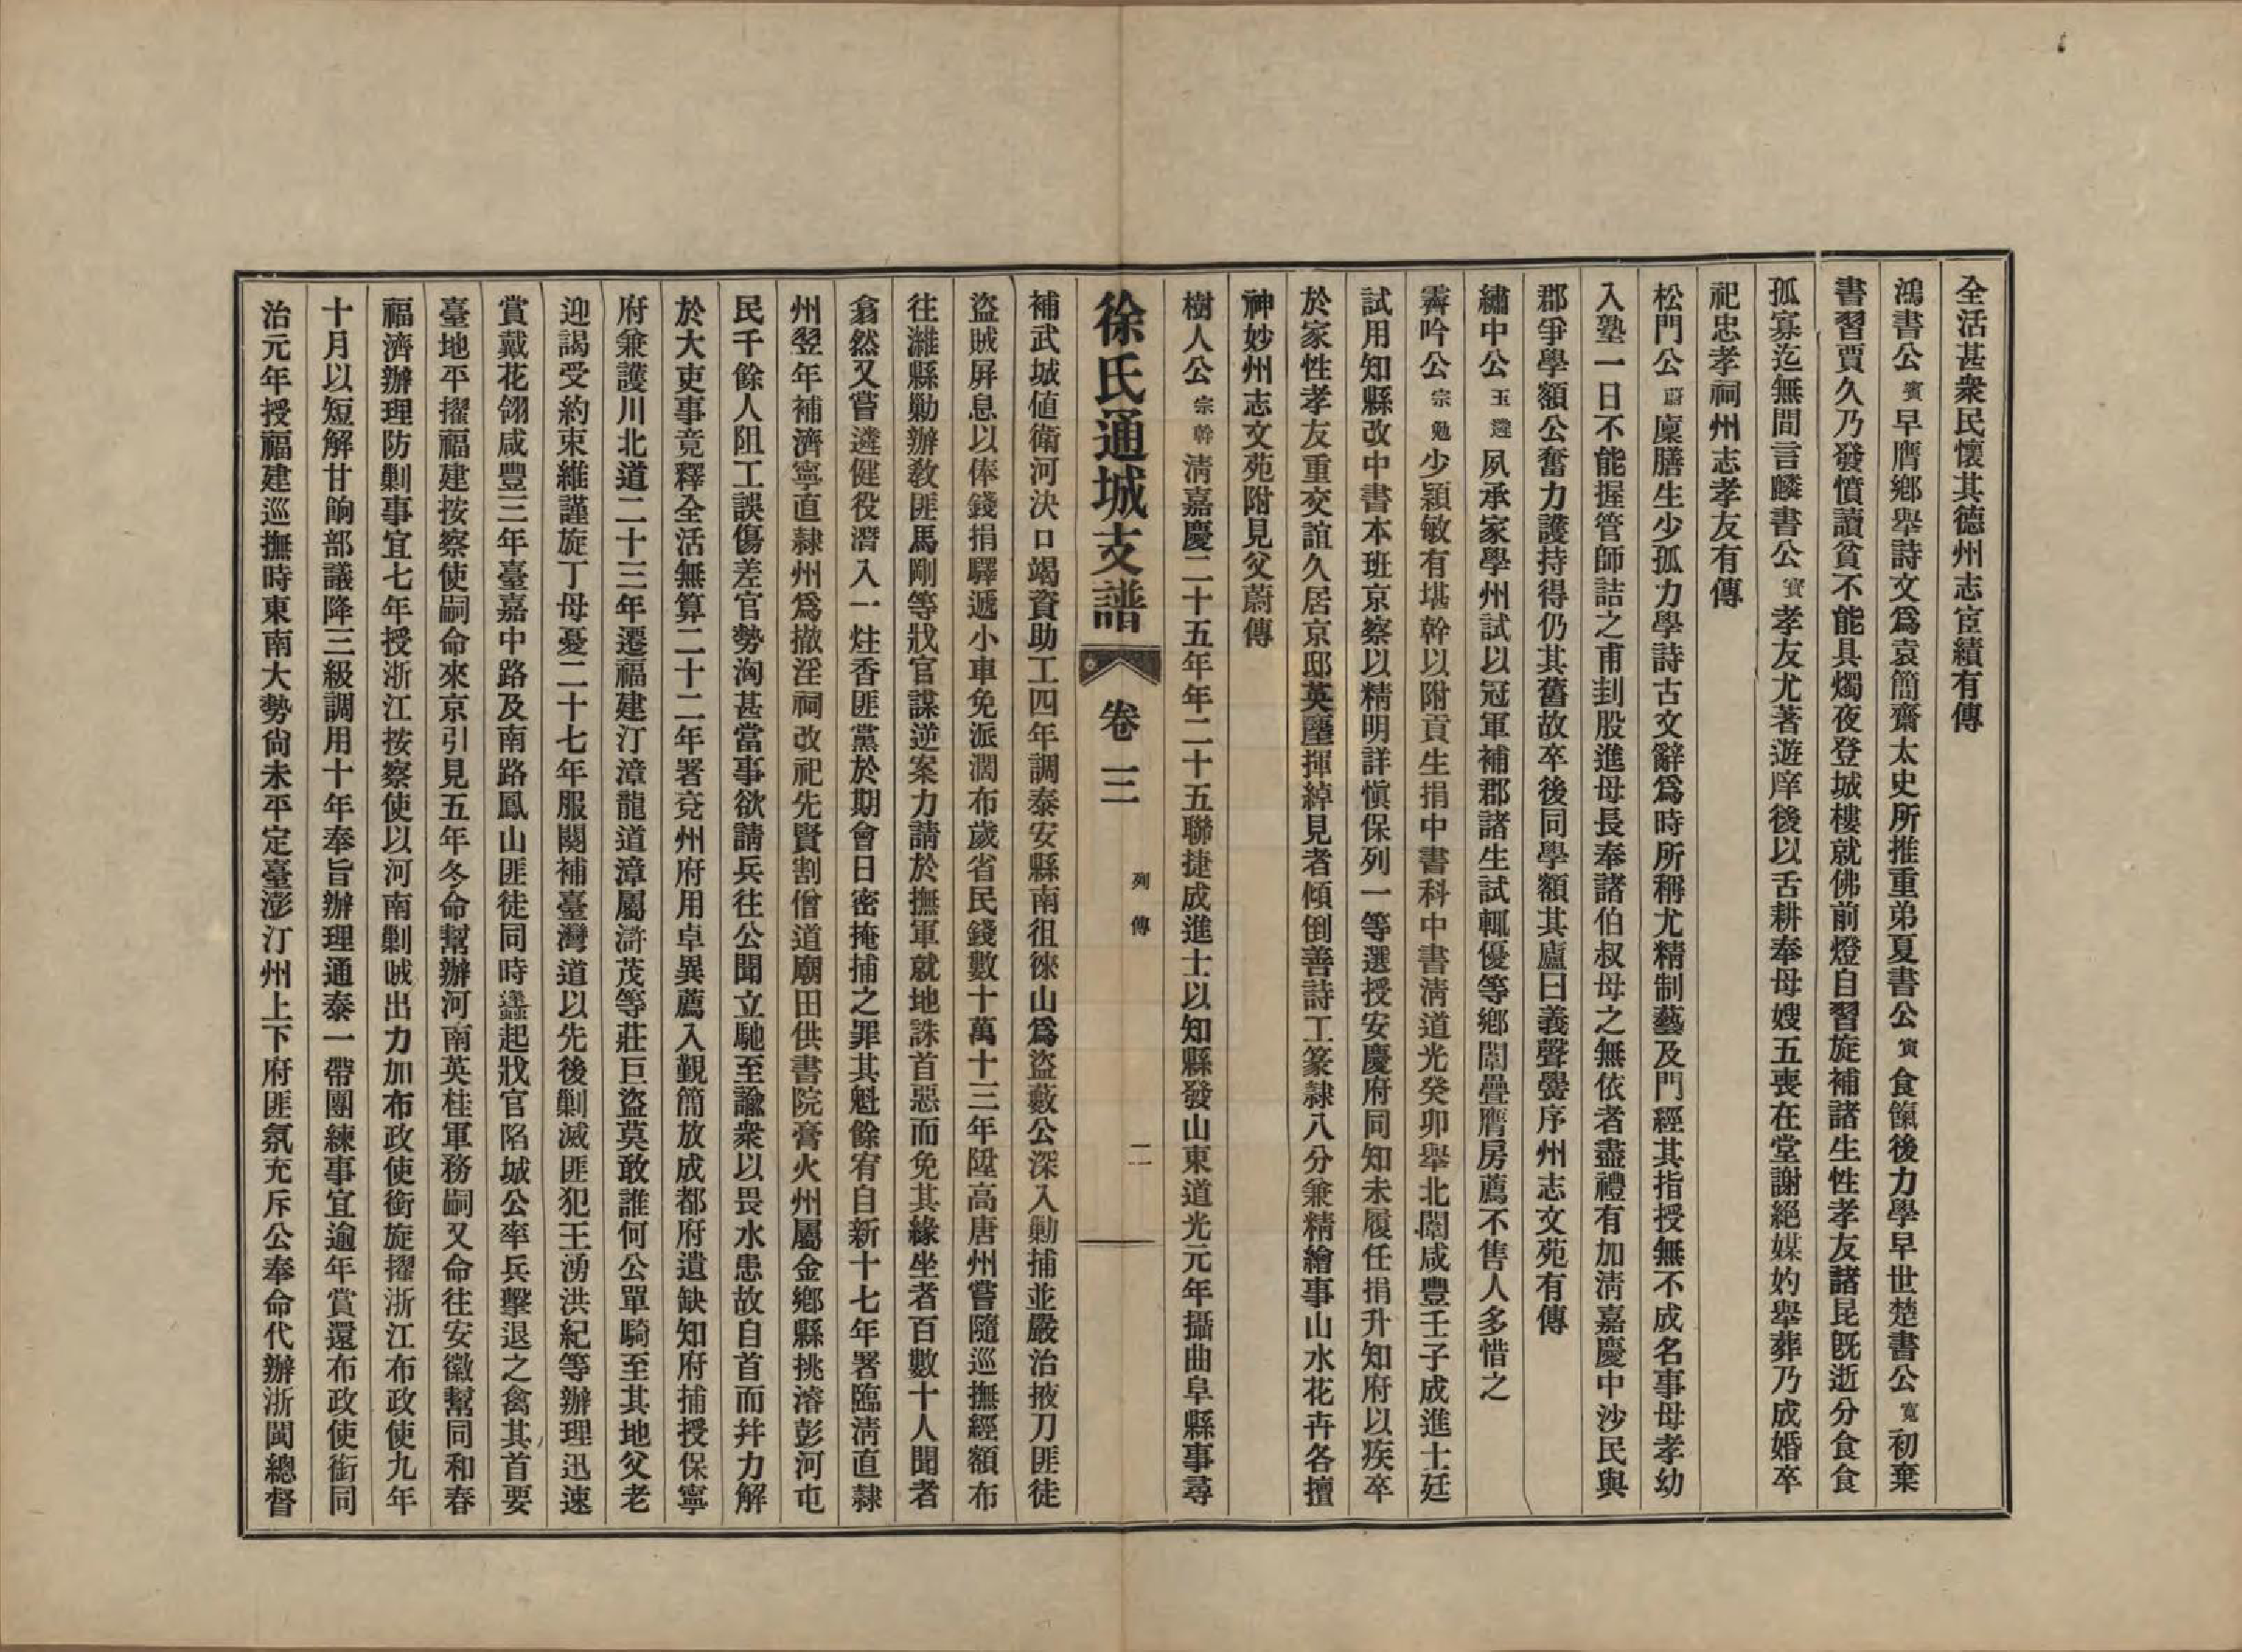 全活甚衆民懷其德州志宦績有傳
鴻書公賓早膺鄉舉詩文爲袁簡齋太史所推重弟夏書公寅食餼後力學早世楚書公寬初棄
書習賈久乃發憤讀貧不能具燭夜登城樓就佛前燈自習旋補諸生性孝友諸昆旣逝分食食
孤寡迄無間言麟書公寳孝友尤著遊庠後以舌耕奉母嫂五喪在堂謝絕媒妁舉葬乃成婚卒
祀忠孝祠州志孝友有傳
松門公蔚廩膳生少孤力學詩古文辭爲時所稱尤精制藝及門經其指授無不成名事母孝幼
入塾一日不能握管師詰之甫刲股進母長奉諸伯叔母之無依者盡禮有加淸嘉慶中沙民與
郡爭學額公奮力護持得仍其舊故卒後同學額其廬曰義聲黌序州志文苑有傳
繡中公玉邃夙承家學州試以冠軍補郡諸生試輒優等鄉闈疊膺房薦不售人多惜之
霽吟公宗勉少穎敏有堪幹以附貢生捐中書科中書淸道光癸卯舉北闈咸豐壬子成進士廷
試用知縣改中書本班京察以精明詳愼保列一等選授安慶府同知未履任捐升知府以疾卒
於家性孝友重交誼久居京邸英蹕揮綽見者傾倒善詩工篆隸八分兼精繪事山水花卉各擅
神妙州志文苑附見父蔚傳
樹人公宗幹淸嘉慶二十五年年二十五聯捷成進士以知縣發山東道光元年攝曲阜縣事尋
徐氏通城支譜 卷三 列傳 二
補武城値衛河決口竭資助工四年調泰安縣南徂徠山爲盜藪公深入勦捕並嚴治掖刀匪徒
盜賊屏息以俸錢捐驛遞小車免派濶布歲省民錢數十萬十三年陞高唐州嘗隨巡撫經額布
往濰縣勦辦敎匪馬剛等戕官謀逆案力請於撫軍就地誅首惡而免其緣坐者百數十人聞者
翕然又嘗遴健役潛入一炷香匪黨於期會日密掩捕之罪其魁餘宥自新十七年署臨淸直隸
州翌年補濟寧直隸州爲撤淫祠改祀先賢割僧道廟田供書院膏火州屬金鄉縣挑濬彭河屯
民千餘人阻工誤傷差官勢洶甚當事欲請兵往公聞立馳至諭衆以畏水患故自首而幷力解
於大吏事竟釋全活無算二十二年署兗州府用卓異薦入覲簡放成都府遺缺知府捕授保寧
府兼護川北道二十三年遷福建汀漳龍道漳屬滸茂等莊巨盜莫敢誰何公單騎至其地父老
迎謁受約束維謹旋丁母憂二十七年服闋補臺灣道以先後剿滅匪犯王湧洪紀等辦理迅速
賞戴花翎咸豐三年臺嘉中路及南路鳳山匪徒同時蠭起戕官陷城公率兵擊退之禽其首要
臺地平擢福建按察使嗣命來京引見五年冬命幫辦河南英桂軍務嗣又命往安徽幫同和春
福濟辦理防剿事宜七年授浙江按察使以河南剿賊出力加布政使銜旋擢浙江布政使九年
十月以短解甘餉部議降三級調用十年奉旨辦理通泰一帶團練事宜逾年賞還布政使銜同
治元年授福建巡撫時東南大勢尙未平定臺澎汀州上下府匪氛充斥公奉命代辦浙閩總督